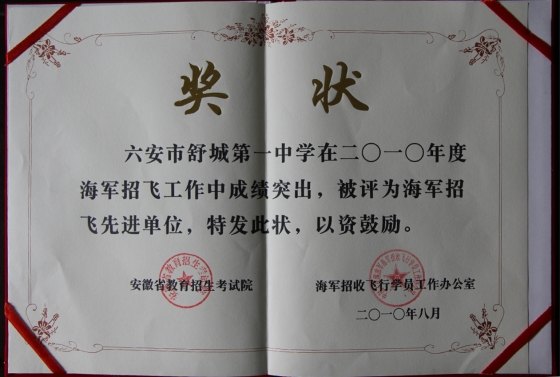 奖状
六安市舒城第一中学在二〇一〇年度
海军招飞工作中成绩突出，被评为海军招
飞先进单位，特发此状，以资鼓励。
安徽省教育招生考试院
海军招收飞行学员工作办公室
二〇一〇年八月